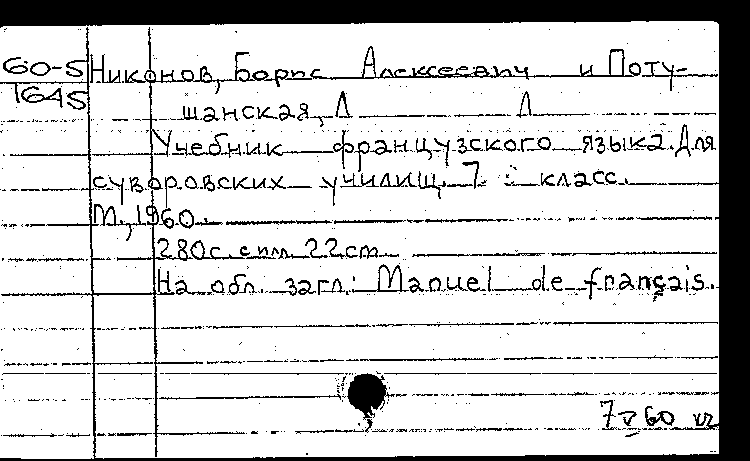 60-5 Никонов, Борис Алексеевич и Поту-
1645 шанская, Л Л
Учебник французского языка. Для
суворовских училищ. 7 : класс.
М., 1960.
280с. с илл. 22cm
На обл. загл.: Manuel de français.
7 V 60